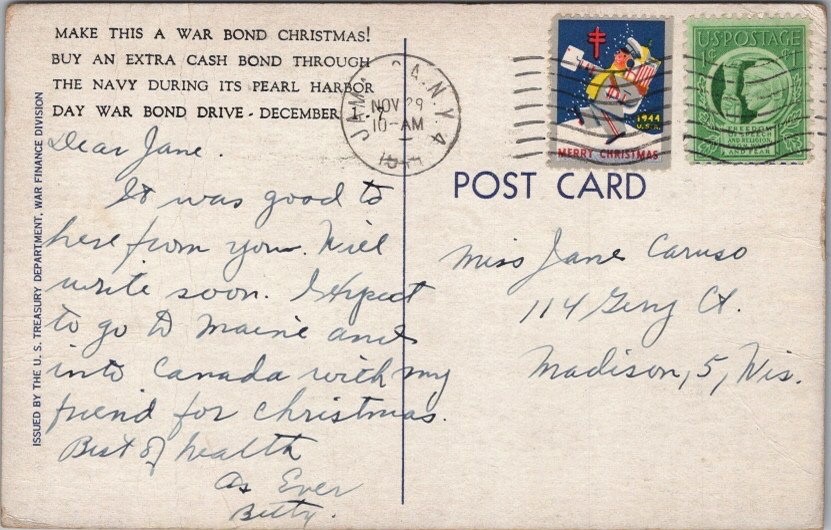 MAKE THIS A WAR BOND CHRISTMAS!
BUY AN EXTRA CASH BOND THROUGH
THE NAVY DURING ITS PEARL HARBOR
DAY WAR BOND DRIVE - DECEMBER 1-7
ISSUED BY THE U. S. TREASURY DEPARTMENT, WAR FINANCE DIVISION
NOV 29
10-AM
1944
U.S.A.
MERRY CHRISTMAS
U.S. POSTAGE
POST CARD
Dear Jane.
It was good to
here from you. Will
write soon. I expect
to go to Maine and
into Canada with my
friend for Christmas.
Best of health
As Ever
Betty.
Miss Jane Caruso
114 Ct.
Madison, 5, Wis.